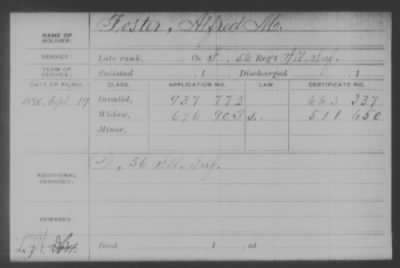 NAME OF SOLDIER: Foster, Alfred M.
SERVICE: Late rank, Co. F, 56 Reg't Ill. Inf.
TERM OF SERVICE: Enlisted , 1 Discharged , 1
DATE OF FILING. CLASS. APPLICATION NO. LAW. CERTIFICATE NO.
1890, Sept. 19 Invalid, 937 772 663 337
Widow, 696 903 511 650
Minor,
ADDITIONAL SERVICES: F, 56 Ill. Inf.
REMARKS:
Died , 1 , at